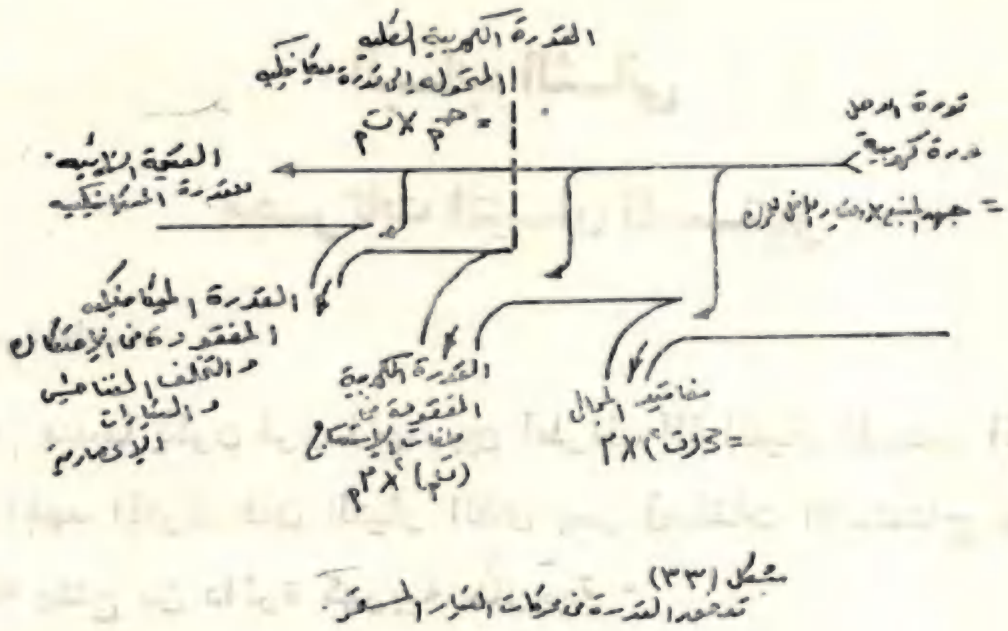 القدرة الكهربية الكليه
المتحوله إلى قدرة ميكانيكيه
= م × ت م
قدرة الدخل
قدرة كهربية
= جهد المنبع ×
القيمة النهائيه
للقدرة الميكانيكيه
القدرة الميكانيكيه
المفقودة فى الإحتكاك
و التخلف المغناطيسى
و التيارات
الإعصارية
القدرة الكهربية
المفقودة فى
ملفات الإستنتاج
(ت م)٢ × م م
مفاقيد المجال
= (ت)٢ × م
شكل (٣٣)
القدرة فى محركات التيار المستمر.